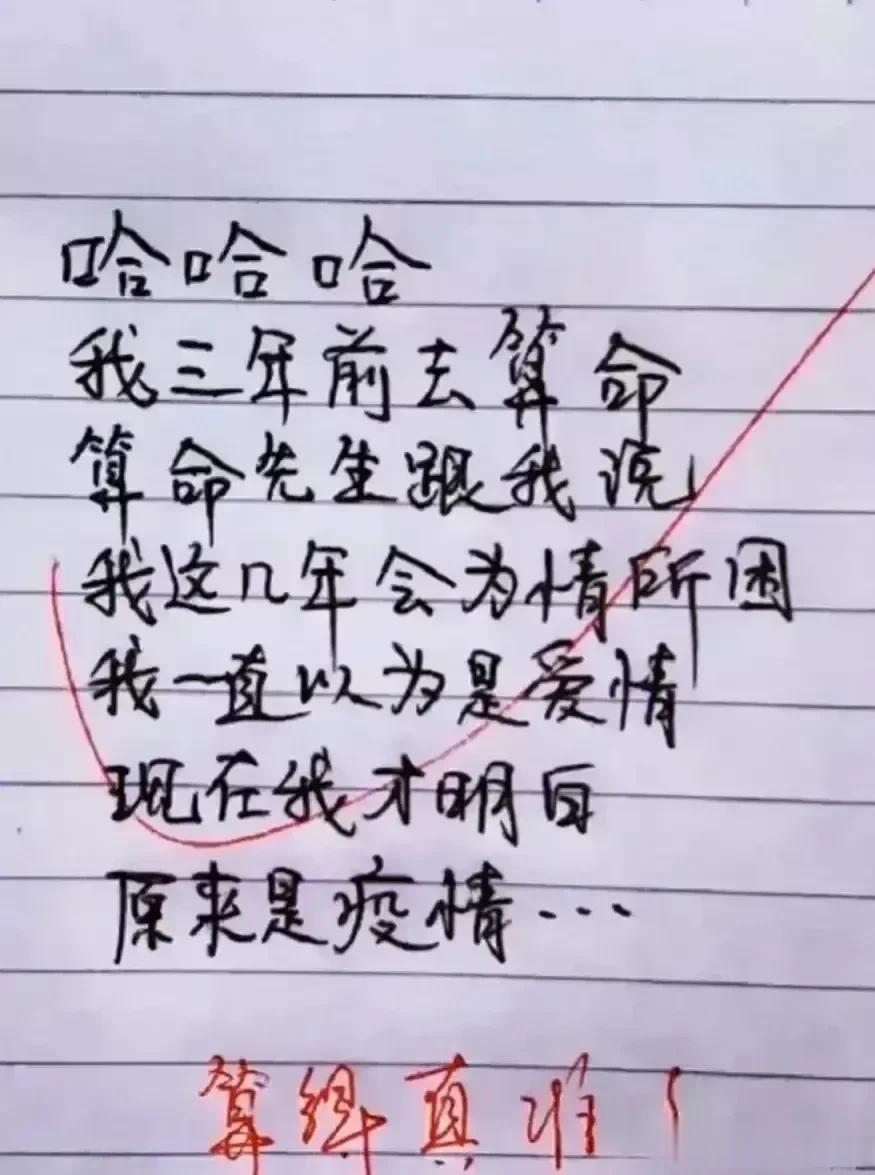 哈哈哈
我三年前去算命
算命先生跟我说
我这几年会为情所困
我一直以为是爱情
现在我才明白
原来是疫情...
算得真准！